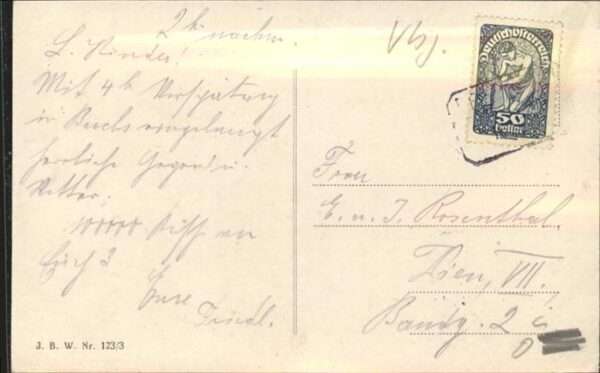 2h nachm.
L. Kinder!
Mit 4h Verspätung
in Buchs eingelangt
herrliche Gegend u.
Wetter,
10000 Küsse an
Euch 3
Eure
Friedl.
J. B. W. Nr. 123/3
Deutschösterreich
50
Heller
Frau
E. u. J. Rosenthal
Wien, VII.
Bandg. 2